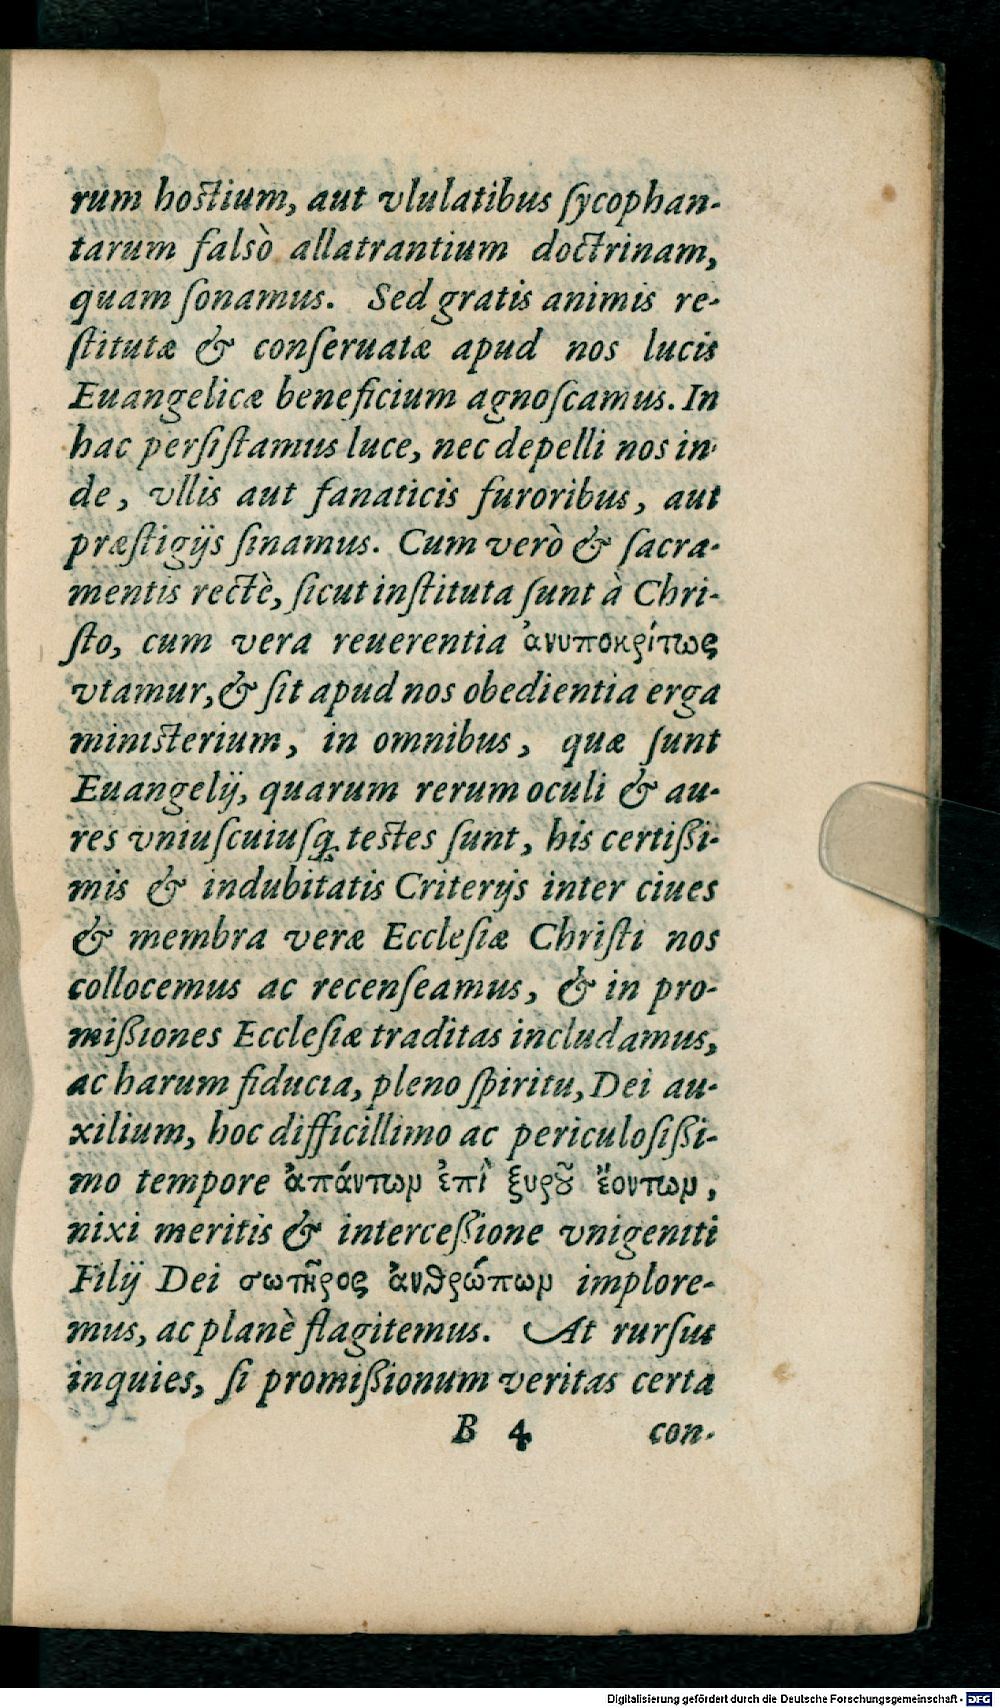 rum hoſtium, aut vlulatibus ſycophan-
tarum falsò allatrantium doctrinam,
quam ſonamus. Sed gratis animis re-
ſtitutæ & conſeruatæ apud nos lucis
Euangelicæ beneficium agnoſcamus. In
hac perſiſtamus luce, nec depelli nos in-
de, vllis aut fanaticis furoribus, aut
præſtigijs ſinamus. Cum verò & ſacra-
mentis rectè, ſicut inſtituta ſunt à Chri-
ſto, cum vera reuerentia ἀνυποκρίτως
vtamur, & ſit apud nos obedientia erga
miniſterium, in omnibus, quæ ſunt
Euangelij, quarum rerum oculi & au-
res vniuſcuiuſq; teſtes ſunt, his certißi-
mis & indubitatis Criterijs inter ciues
& membra veræ Eccleſiæ Chriſti nos
collocemus ac recenſeamus, & in pro-
mißiones Eccleſiæ traditas includamus,
ac harum fiducia, pleno ſpiritu, Dei au-
xilium, hoc difficillimo ac periculoſißi-
mo tempore ἁπάντωμ ἐπὶ ξυροῦ ἔοντωμ,
nixi meritis & interceßione vnigeniti
Filij Dei σωτῆρος ἀνθρώπωμ implore-
mus, ac planè flagitemus. At rurſus
inquies, ſi promißionum veritas certa
B 4 con-
Digitalisierung gefördert durch die Deutsche Forschungsgemeinschaft - DFG